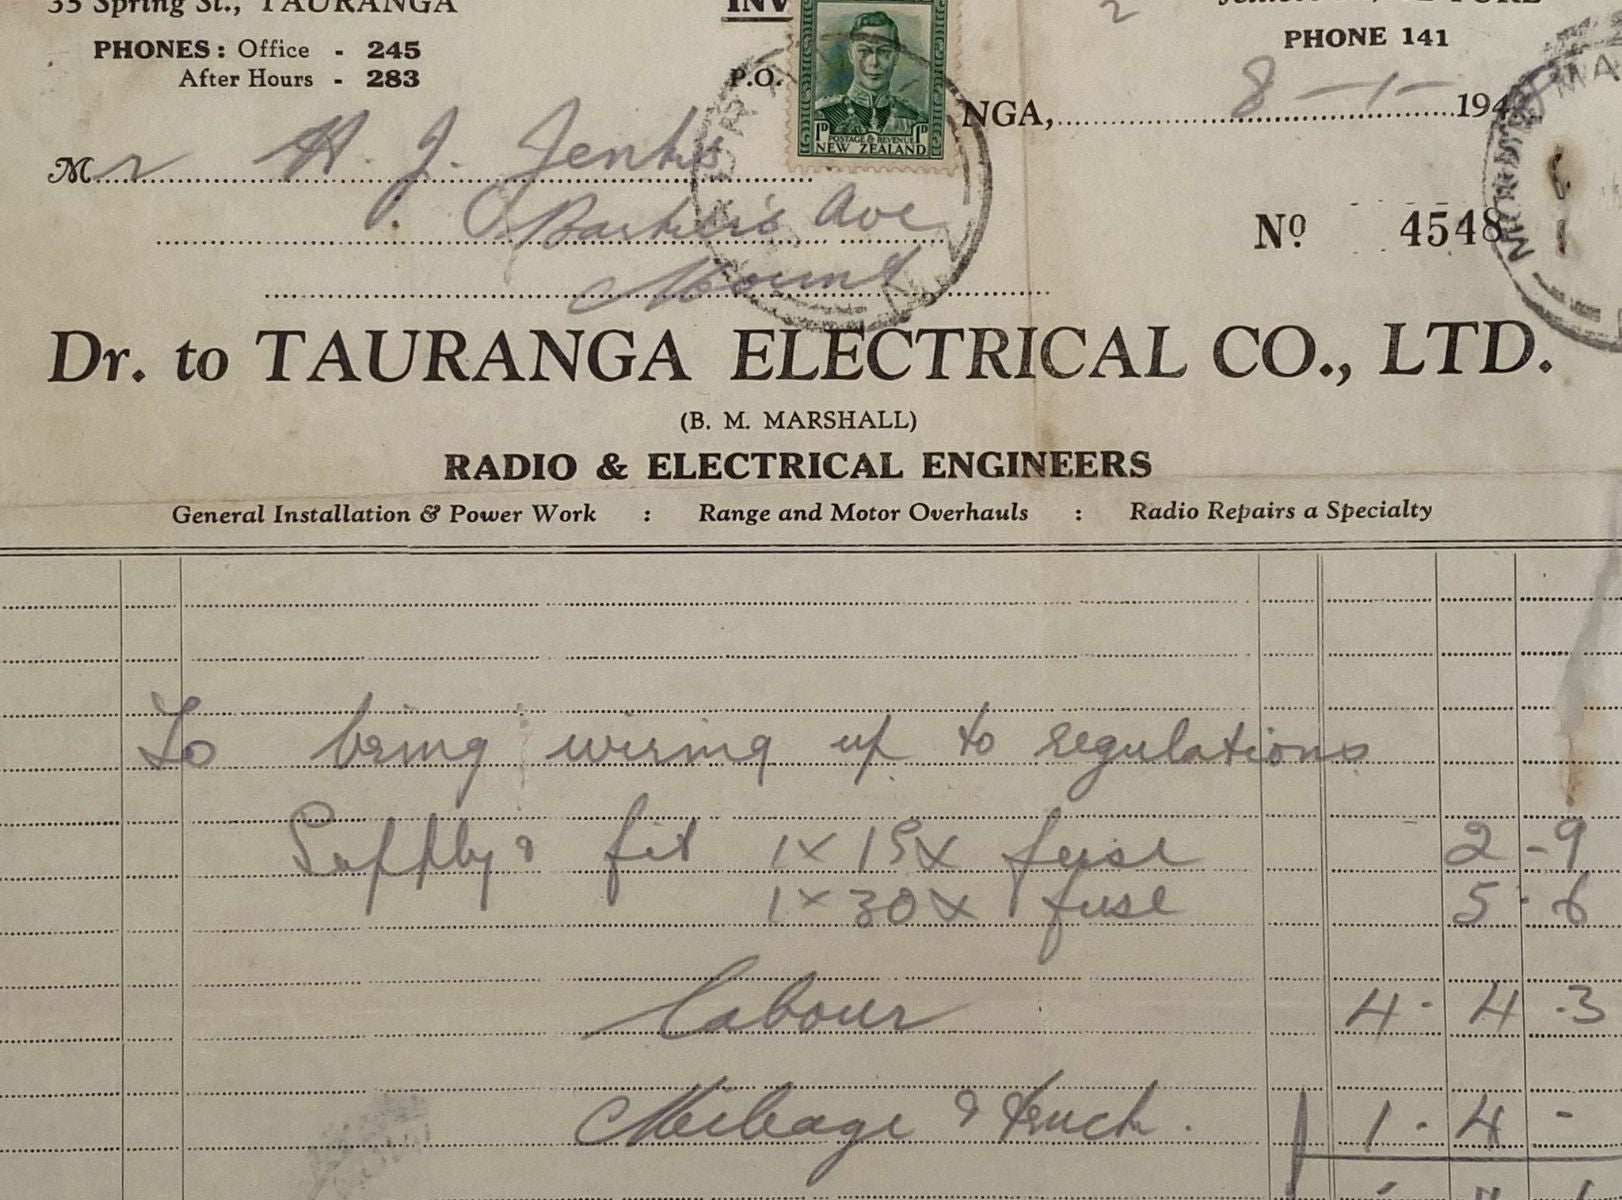 35 Spring St., TAURANGA
PHONES: Office - 245
After Hours - 283
INV
P.O.
1D POSTAGE & REVENUE 1D
NEW ZEALAND
2
PHONE 141
NGA, 8 - 1 - 194
Mr H. J. Jenks
Ave
Mount
No 4548
Dr. to TAURANGA ELECTRICAL CO., LTD.
(B. M. MARSHALL)
RADIO & ELECTRICAL ENGINEERS
General Installation & Power Work : Range and Motor Overhauls : Radio Repairs a Specialty
To bring wiring up to regulations
Supply & fit 1 x 15x fuse 2 - 9
1 x 30x fuse 5 - 6
Labour 4 - 4 - 3
Mileage & truck. 1 - 4 -